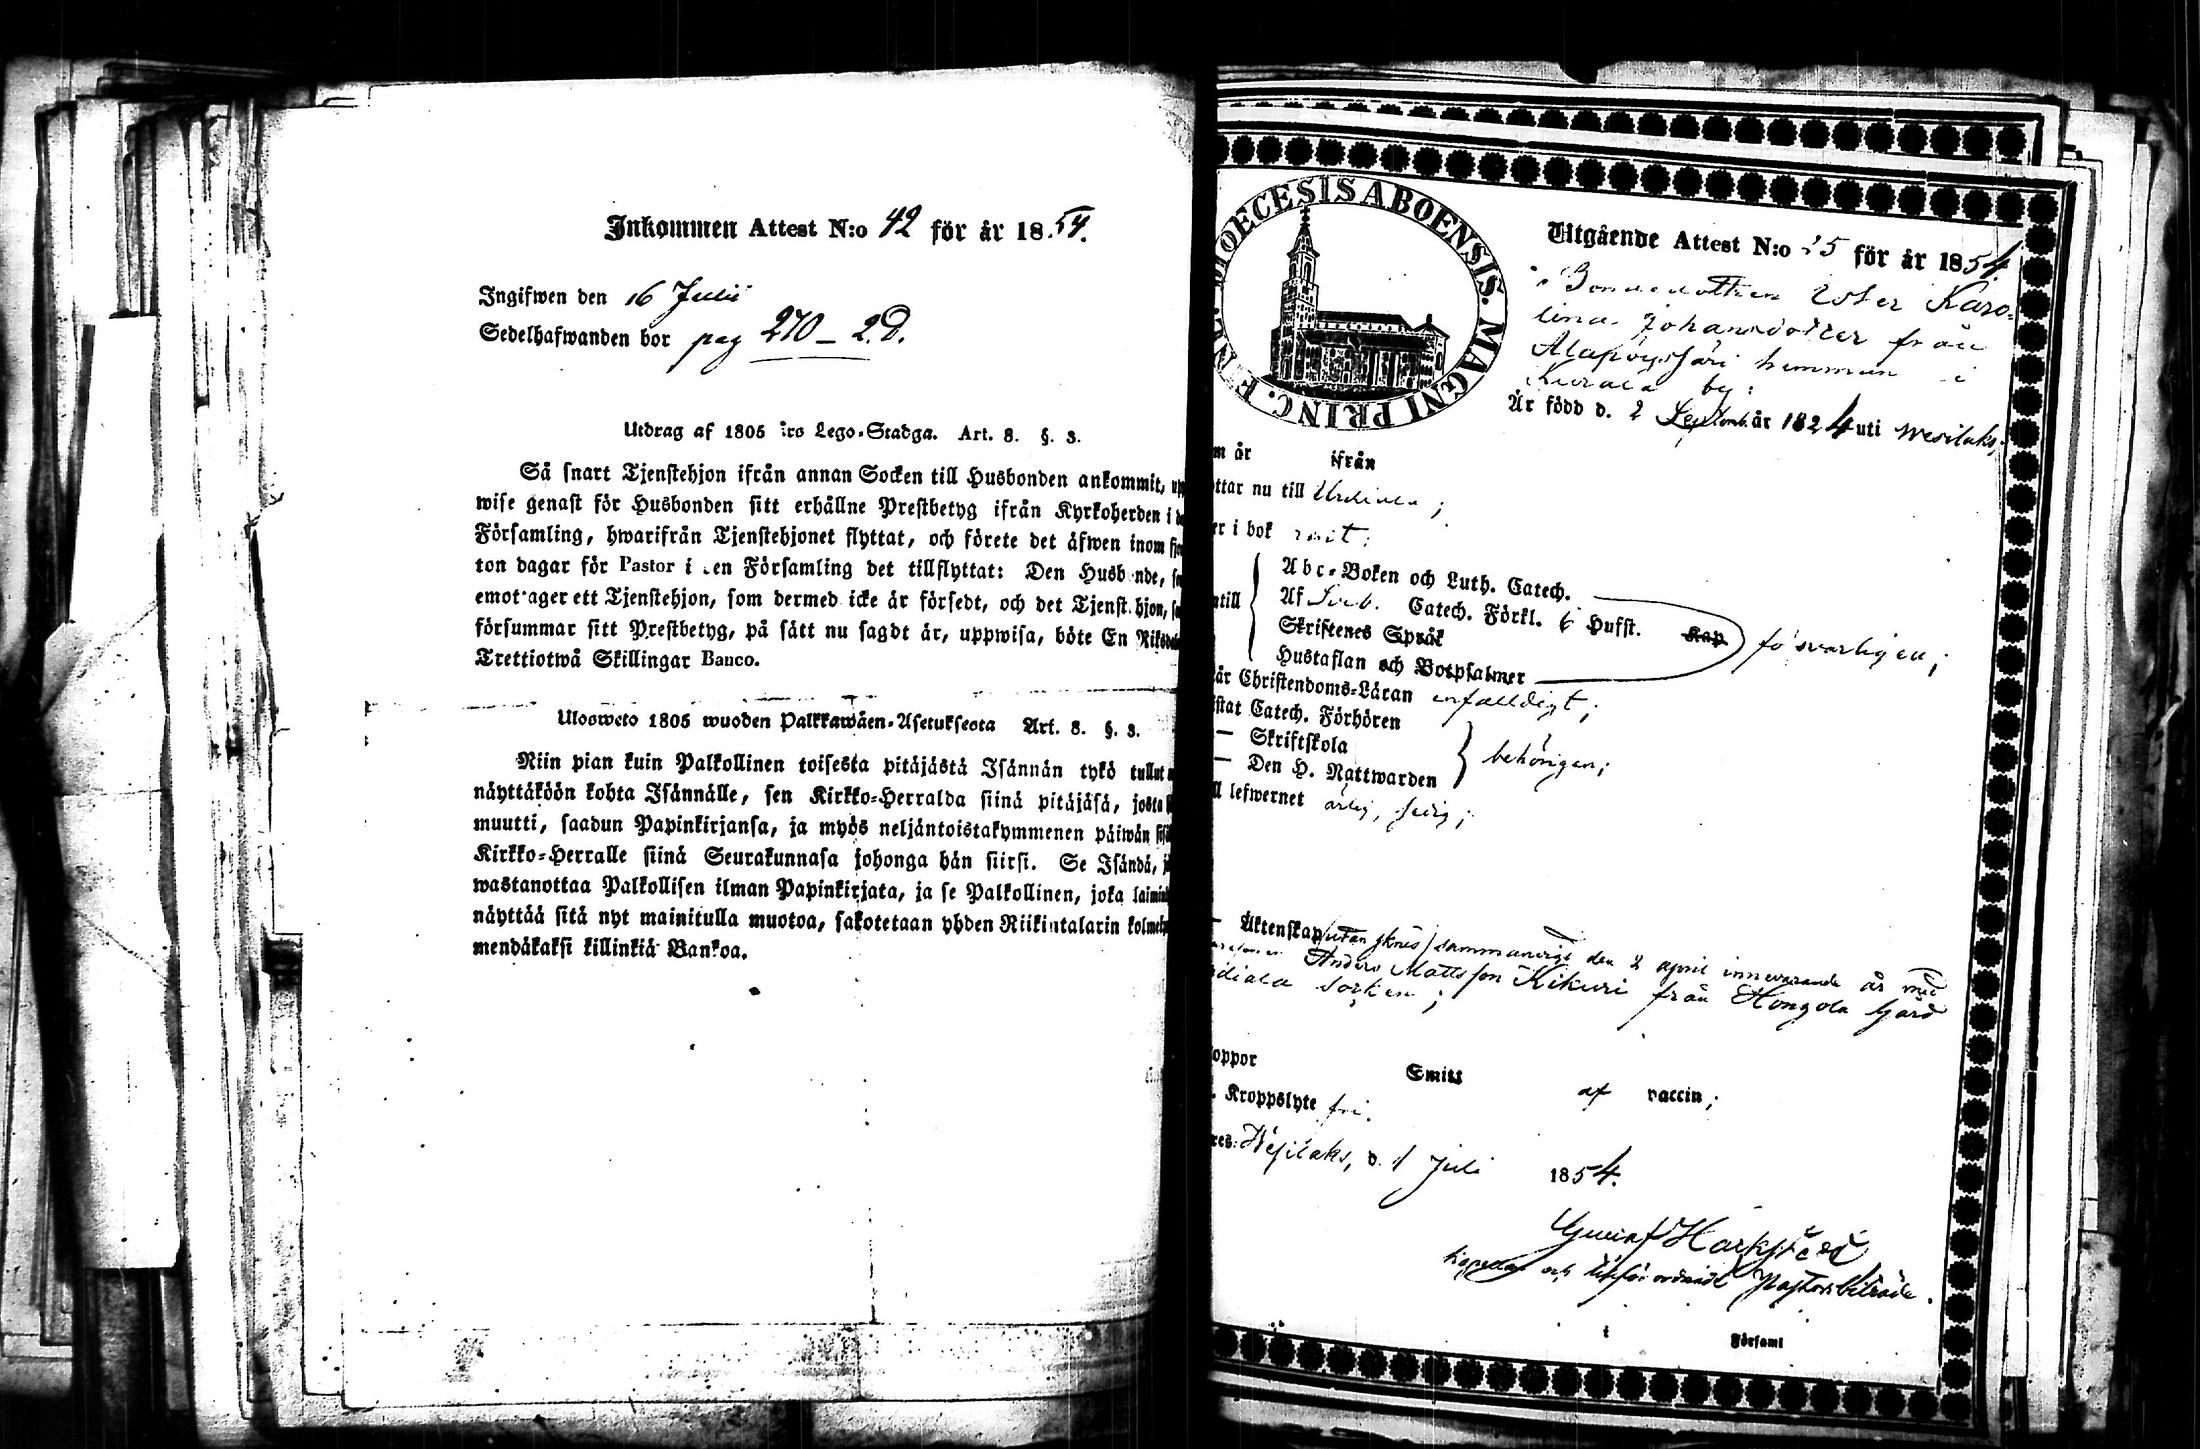 Inkommen Attest N:o 42 för år 1854.
Ingifwen den 16 Julii
Sedelhafwanden bor pag 270 – 2. D.
Utdrag af 1805 års Lego-Stadga. Art. 8. §. 3.
Så snart Tjenstehjon ifrån annan Socken till Husbonden ankommit,
wise genast för Husbonden sitt erhållne Prestbetyg ifrån Kyrkoherden i
Församling, hwarifrån Tjenstehjonet flyttat, och förete det äfwen inom
ton dagar för Pastor i den Församling det tillflyttat: Den Husbonde,
emottager ett Tjenstehjon, som dermed icke är försedt, och det Tjenstehjon,
försummar sitt Prestbetyg, på sätt nu sagdt är, uppwisa, böte En
Trettiotwå Skillingar Banco.
Ulosweto 1805 wuoden Palkkawäen-Asetuksesta Art. 8. §. 3.
Niin pian kuin Palkollinen toisesta pitäjästä Isännän tykö tullut
näyttäköön kohta Isännälle, sen Kirkko-Herralda siinä pitäjäsä, josta
muutti, saadun Papinkirjansa, ja myös neljäntoistakymmenen päiwän
Kirkko-Herralle siinä Seurakunnasa johonga hän siirsi. Se Isändä,
wastanottaa Palkollisen ilman Papinkirjata, ja se Palkollinen, joka
näyttää sitä nyt mainitulla muotoa, sakotetaan yhden Riikintalarin
mendäkaksi killinkiä Bankoa.
DIOECESIS ABOENSIS. MAGNI PRINC.
Utgående Attest N:o 25 för år 1854.
Bondedottren Ester Karo-
lina Johansdotter från
hemman i
Kurala by:
Är född d. 2 Septemb. år 1824 uti Wesilaks,
m är ifrån
ttar nu till Urdiala;
er i bok rent;
Abc-Boken och Luth. Catech.
Af Sveb. Catech. Förkl. 6 Hufst. Kap
ntill
Skriftenes Språk
försvarligen;
Hustaflan och Botpsalmer
är Christendoms-Läran enfalldigt;
istat Catech. Förhören
— Skriftskola
— Den H. Nattwarden
behörigen;
ll lefwernet ärlig, sedig;
— Äktenskap sammanvigd den 2 april innevarande år med
Anders Mattsson Kikuri från Hongola Gård
diala socken;
oppor Smitt af vaccin;
. Kroppslyte fri.
res: Wesilaks, d. 1 Juli 1854.
och
i Församl